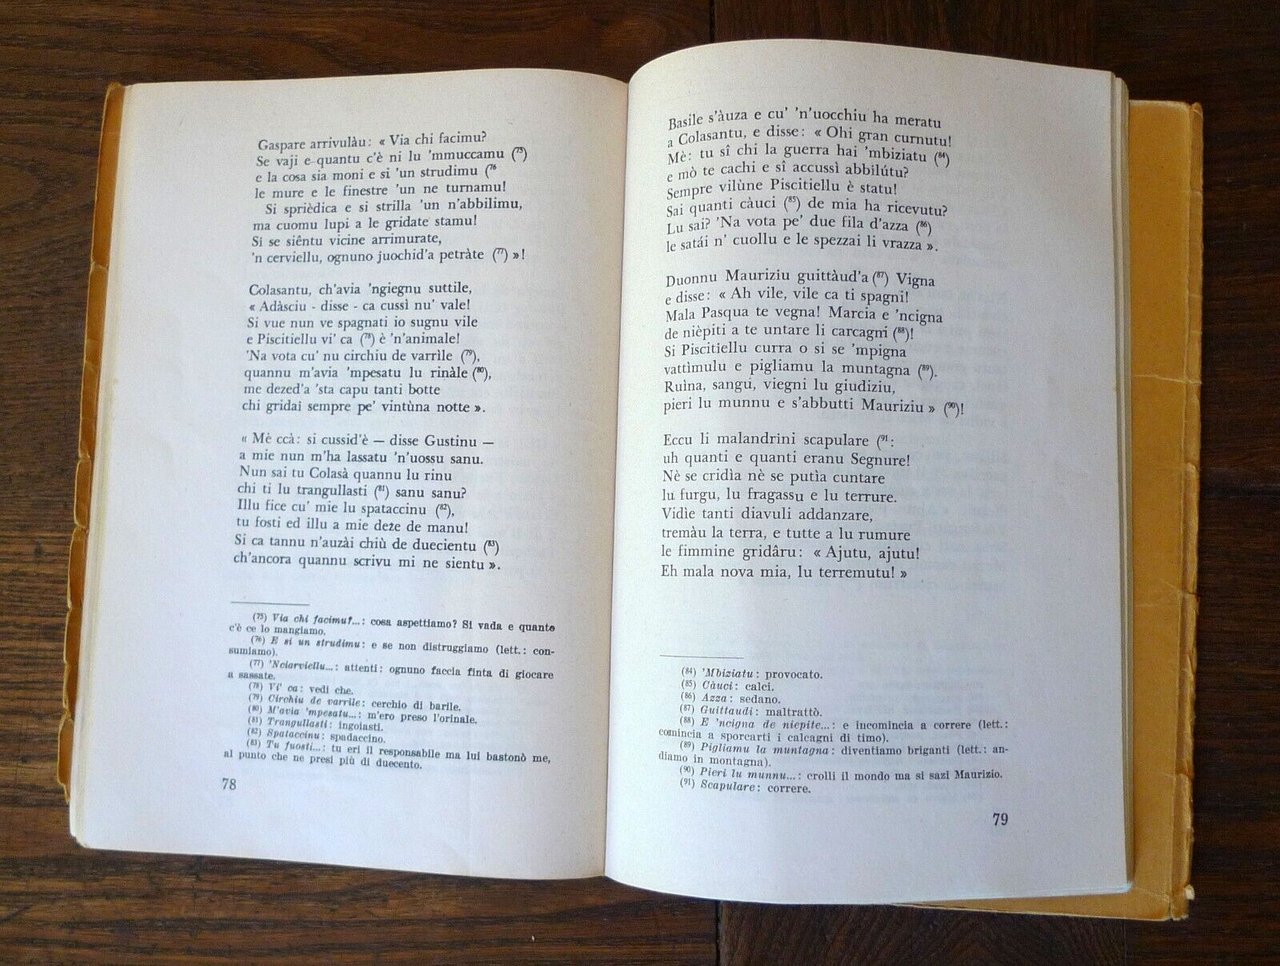 Gaspare arrivulàu: « Via chi facimu?
Se vaji e quantu c'è ni lu 'mmuccamu (⁷⁵)
e la cosa sia moni e si 'un strudimu (⁷⁶
le mure e le finestre 'un ne turnamu!
Si sprièdica e si strilla 'un n'abbilimu,
ma cuomu lupi a le gridate stamu!
Si se siêntu vicine arrimurate,
'n cerviellu, ognuno juochid'a petràte (⁷⁷) »!
Colasantu, ch'avia 'ngiegnu suttile,
« Adàsciu - disse - ca cussì nu' vale!
Si vue nun ve spagnati io sugnu vile
e Piscitiellu vi' ca (⁷⁸) è 'n'animale!
'Na vota cu' nu circhiu de varrìle (⁷⁹),
quannu m'avia 'mpesatu lu rinàle (⁸⁰),
me dezed'a 'sta capu tanti botte
chi gridai sempre pe' vintùna notte ».
« Mè ccà: si cussid'è — disse Gustinu —
a mie nun m'ha lassatu 'n'uossu sanu.
Nun sai tu Colasà quannu lu rinu
chi ti lu trangullasti (⁸¹) sanu sanu?
Illu fice cu' mie lu spataccinu (⁸²),
tu fosti ed illu a mie deze de manu!
Si ca tannu n'auzài chiù de duecientu (⁸³)
ch'ancora quannu scrivu mi ne sientu ».
(⁷⁵) Via chi facimu?...: cosa aspettiamo? Si vada e quanto
c'è ce lo mangiamo.
(⁷⁶) E si un strudimu: e se non distruggiamo (lett.: con-
sumiamo).
(⁷⁷) 'Nciarviellu...: attenti: ognuno faccia finta di giocare
a sassate.
(⁷⁸) Vi' ca: vedi che.
(⁷⁹) Circhiu de varrile: cerchio di barile.
(⁸⁰) M'avia 'mpesatu...: m'ero preso l'orinale.
(⁸¹) Trangullasti: ingoiasti.
(⁸²) Spataccinu: spadaccino.
(⁸³) Tu fuosti...: tu eri il responsabile ma lui bastonò me,
al punto che ne presi più di duecento.
78
Basile s'àuza e cu' 'n'uocchiu ha meratu
a Colasantu, e disse: « Ohi gran curnutu!
Mè: tu sì chi la guerra hai 'mbiziatu (⁸⁴)
e mò te cachi e sì accussì abbilútu?
Sempre vilùne Piscitiellu è statu!
Sai quanti càuci (⁸⁵) de mia ha ricevutu?
Lu sai? 'Na vota pe' due fila d'azza (⁸⁶)
le satái n' cuollu e le spezzai li vrazza ».
Duonnu Mauriziu guittàud'a (⁸⁷) Vigna
e disse: « Ah vile, vile ca ti spagni!
Mala Pasqua te vegna! Marcia e 'ncigna
de nièpiti a te untare li carcagni (⁸⁸)!
Si Piscitiellu curra o si se 'mpigna
vattìmulu e pigliamu la muntagna (⁸⁹).
Ruina, sangu, viegni lu giudiziu,
pieri lu munnu e s'abbutti Mauriziu » (⁹⁰)!
Eccu li malandrini scapulare (⁹¹:
uh quanti e quanti eranu Segnure!
Nè se cridìa nè se putìa cuntare
lu furgu, lu fragassu e lu terrure.
Vidìe tanti diavuli addanzare,
tremàu la terra, e tutte a lu rumure
le fimmine gridâru: « Ajutu, ajutu!
Eh mala nova mia, lu terremutu! »
(⁸⁴) 'Mbiziatu: provocato.
(⁸⁵) Càuci: calci.
(⁸⁶) Azza: sedano.
(⁸⁷) Guittaudi: maltrattò.
(⁸⁸) E 'ncigna de niepite...: e incomincia a correre (lett.:
comincia a sporcarti i calcagni di timo).
(⁸⁹) Pigliamu la muntagna: diventiamo briganti (lett.: an-
diamo in montagna).
(⁹⁰) Pieri lu munnu...: crolli il mondo ma si sazi Maurizio.
(⁹¹) Scapulare: correre.
79